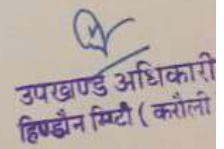 उपखण्ड अधिकारी
हिण्डौन सिटी ( करौली